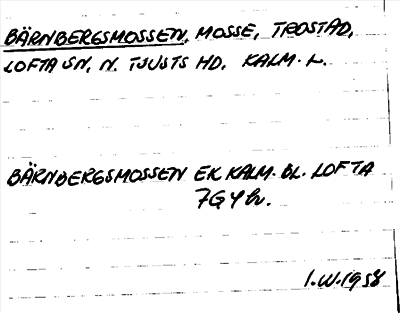 BÄRNBERGSMOSSEN, MOSSE, TROSTAD,
LOFTA SN, N. TJUSTS HD, KALM. L.
BÄRNBERGSMOSSEN EK KALM. BL. LOFTA
7G4h.
I.W. 1958